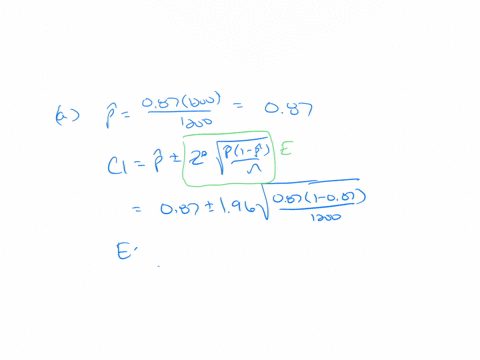 (a) p̂ = 0.87(1200)/1200 = 0.87
CI = p̂ ± z* √(p̂(1-p̂)/n) E
= 0.87 ± 1.96 √(0.87(1-0.87)/1200)
E: